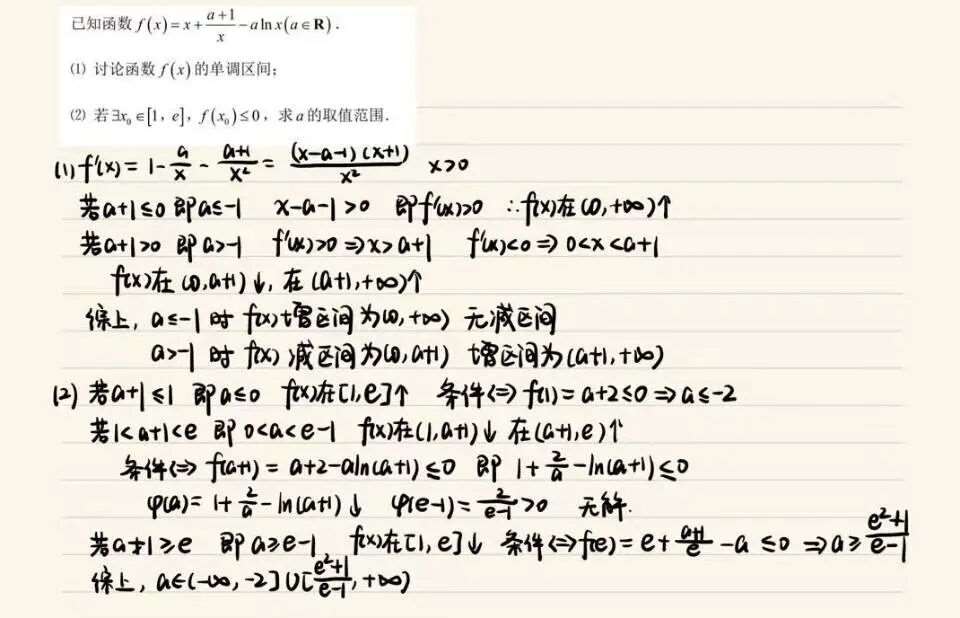 已知函数 f(x)=x+\frac{a+1}{x}-a\ln x(a∈R).
(1) 讨论函数 f(x) 的单调区间;
(2) 若∃x₀∈[1, e], f(x₀)≤0, 求 a 的取值范围.
(1) f'(x)=1-\frac{a}{x}-\frac{a+1}{x²}=\frac{(x-a-1)(x+1)}{x²} x>0
若a+1≤0 即a≤-1 x-a-1>0 即f'(x)>0 ∴f(x)在(0,+∞)↑
若a+1>0 即a>-1 f'(x)>0⇒x>a+1 f'(x)<0⇒0<x<a+1
f(x)在(0,a+1)↓, 在(a+1,+∞)↑
综上, a≤-1时 f(x)增区间为(0,+∞) 无减区间
a>-1时 f(x)减区间为(0,a+1) 增区间为(a+1,+∞)
(2) 若a+1≤1 即a≤0 f(x)在[1,e]↑ 条件⇔f(1)=a+2≤0⇒a≤-2
若1<a+1<e 即0<a<e-1 f(x)在(1,a+1)↓ 在(a+1,e)↑
条件⇔f(a+1)=a+2-aln(a+1)≤0 即 1+\frac{2}{a}-ln(a+1)≤0
φ(a)=1+\frac{2}{a}-ln(a+1)↓ φ(e-1)=\frac{2}{e-1}>0 无解.
若a+1≥e 即a≥e-1 f(x)在[1,e]↓ 条件⇔f(e)=e+\frac{a+1}{e}-a≤0⇒a≥\frac{e²+1}{e-1}
综上, a∈(-∞,-2]∪[\frac{e²+1}{e-1},+∞)